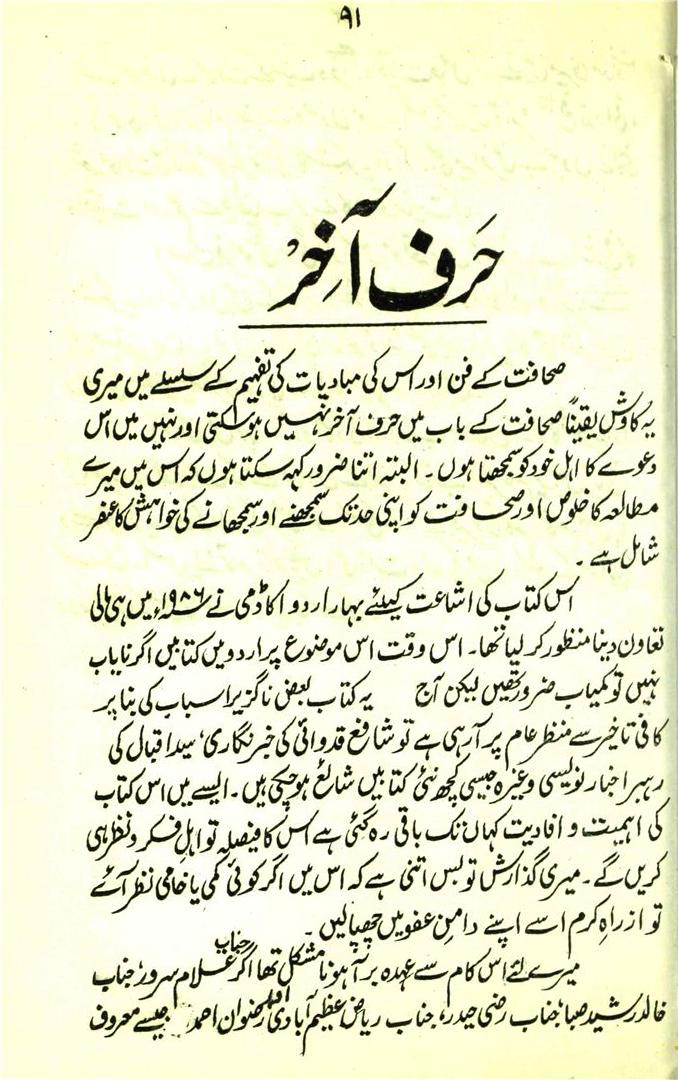 ۹۱
حَرفِ آخِرْ
صحافت کے فن اور اس کی مبادیات کی تفہیم کے سلسلے میں میری
یہ کاوش یقیناً صحافت کے باب میں حرف آخر نہیں ہو سکتی اور نہیں میں اس
دعوے کا اہل خود کو سمجھتا ہوں۔ البتہ اتنا ضرور کہہ سکتا ہوں کہ اس میں میرے
مطالعہ کا خلوص اور صحافت کو اپنی حد تک سمجھنے اور سمجھانے کی خواہش کا عنصر
شامل ہے۔
اس کتاب کی اشاعت کیلئے بہار اردو اکاڈمی نے ۱۹۸۶ء میں ہی مالی
تعاون دینا منظور کر لیا تھا۔ اس وقت اس موضوع پر اردو میں کتابیں اگر نایاب
نہیں تو کمیاب ضرور تھیں لیکن آج یہ کتاب بعض ناگزیر اسباب کی بنا پر
کافی تاخیر سے منظر عام پر آرہی ہے تو شافع قدوائی کی خبر نگاری، سید اقبال کی
رہبر اخبار نویسی وغیرہ جیسی کچھ نئی کتابیں شائع ہو چکی ہیں۔ ایسے میں اس کتاب
کی اہمیت و افادیت کہاں تک باقی رہ گئی ہے اس کا فیصلہ تو اہل فکر و نظر ہی
کریں گے۔ میری گذارش تو بس اتنی ہے کہ اس میں اگر کوئی کمی یا خامی نظر آئے
تو از راہِ کرم اسے اپنے دامن عفو میں چھپالیں۔
میرے لئے اس کام سے عہدہ برآ ہونا مشکل تھا اگر جناب غلام سرور، جناب
خالد رشید صبا، جناب رضی حیدر، جناب ریاض عظیم آبادی اور رضوان احمد جیسے معروف